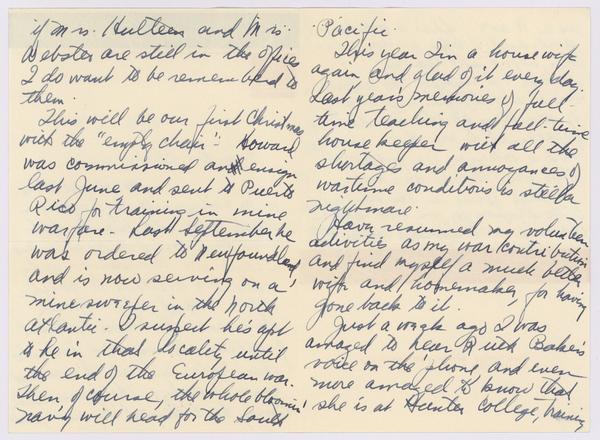 if Mrs. Hulteen and Mrs.
Webster are still in the offices
I do want to be remembered to
them.
This will be our first Christmas
with the "empty chair". Howard
was commissioned an ensign
last June and sent to Puerto
Rico for training in mine
warfare. Last September he
was ordered to Newfoundland,
and is now serving on a
minesweeper in the North
Atlantic. I suspect he's apt
to be in that locality until
the end of the European war.
Then, of course, the whole bloomin'
navy will head for the South
Pacific.
This year I'm a housewife
again and glad of it every day.
Last year's memories of full-
time teaching and full-time
housekeeper with all the
shortages and annoyances of
wartime conditions is still a
nightmare.
Have resumed my volunteer
activities as my war contribution
and find myself a much better
wife and homemaker, for having
gone back to it.
Just a week ago I was
amazed to hear Ruth Baker's
voice on the 'phone and even
more amazed to know that
she is at Hunter College, training